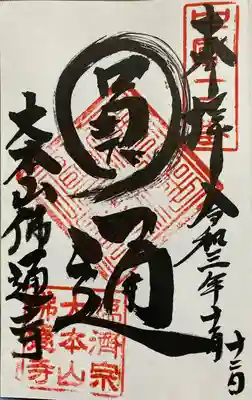 奉拝
令和三年十一月十二日
圓通
大本山佛通寺
臨濟宗
大本山
佛通寺